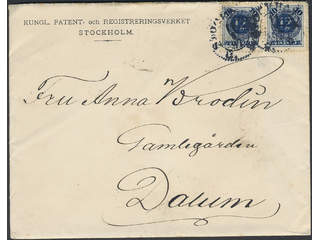 KUNGL. PATENT- och REGISTRERINGSVERKET
STOCKHOLM.
Fru Anna Brodin
Gamlegården
Dalum